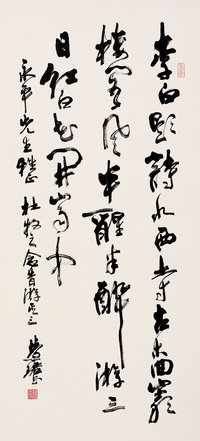 李白題詩水西寺古木回巖
樓閣風半醒半醉游三
日紅白花開山雨中
永年先生雅正 杜牧之念昔游其三